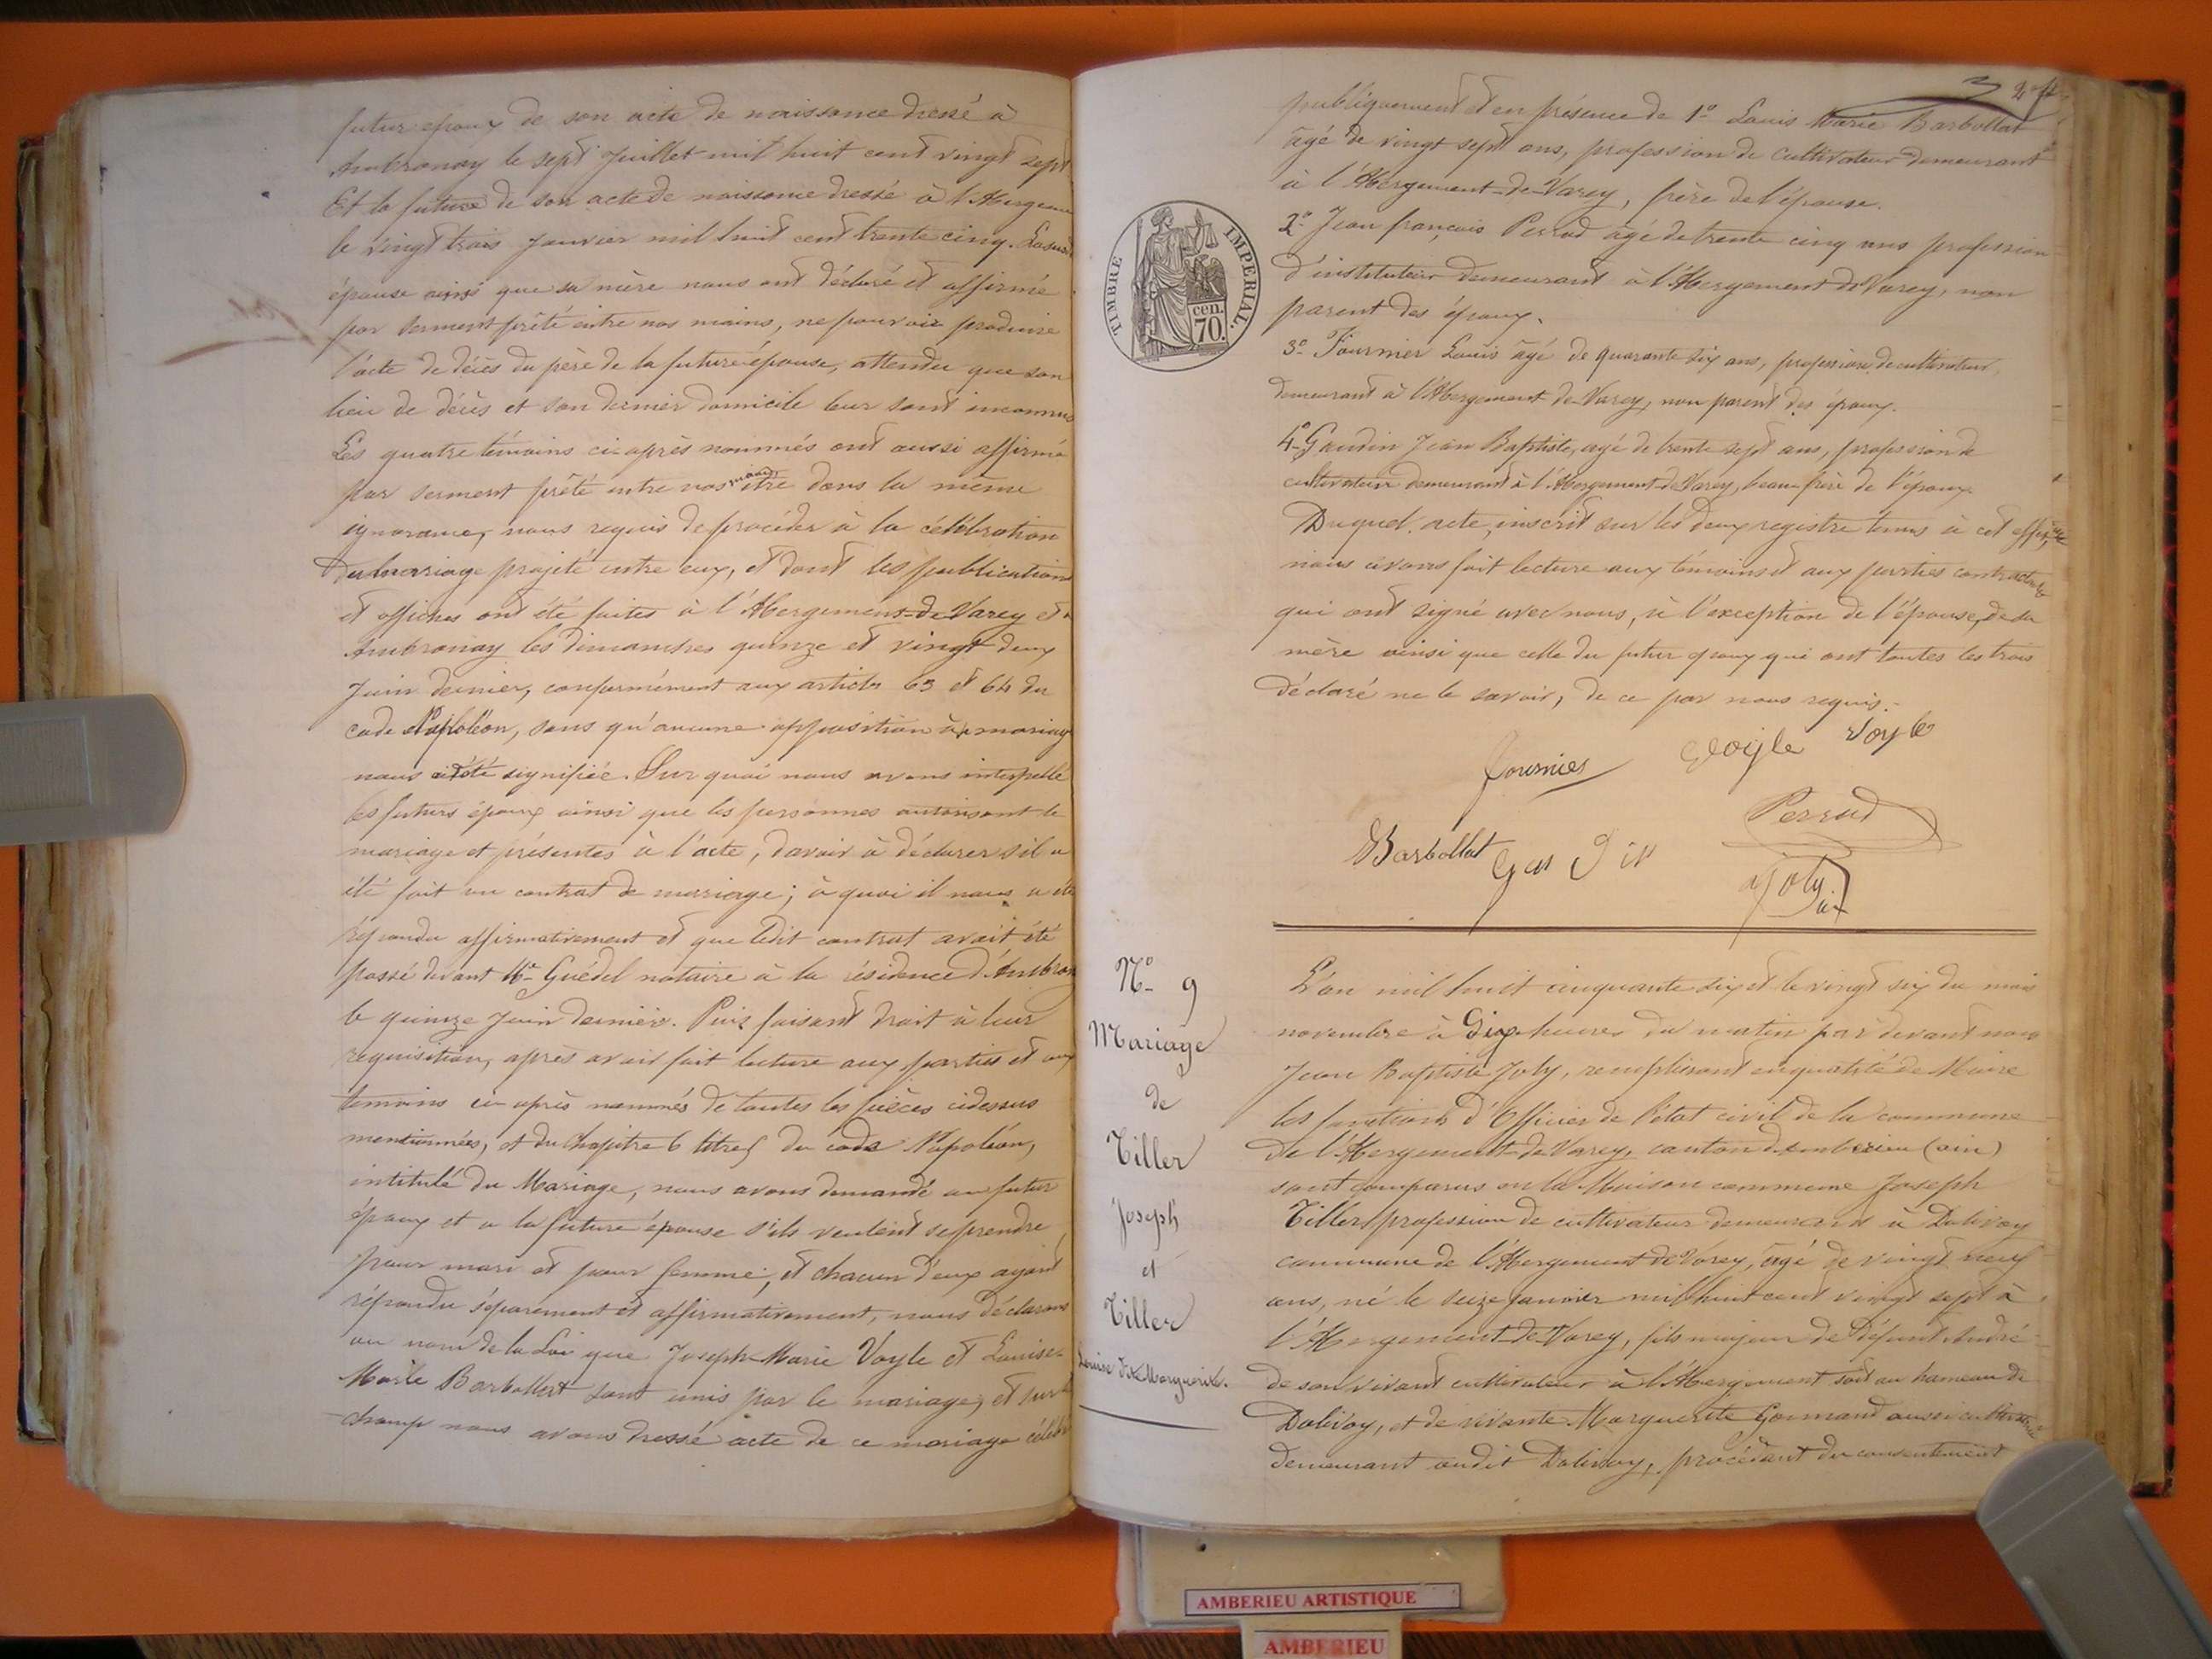 futur epoux de son acte de naissance dressé à
Ambronay le sept Juillet mil huit cent vingt sept
Et la future de son acte de naissance dressé à l'Abergeme
le vingt trois Janvier mil huit cent trente cinq. La
épouse ainsi que sa mère nous ont déclaré et affirmé
par serment prêté entre nos mains, ne pouvoir produire
l'acte de décès du père de la future épouse, attendu que son
lieu de décès et son dernier domicile leur sont inconnus
Les quatre témoins ci-après nommés ont aussi affirmé
par serment prêté entre nos mains être dans la même
ignorance, nous requis de procéder à la célébration
du mariage projeté entre eux, et dont les publications
et affiches ont été faites à l'Abergement-de-Varey et
Ambronay les dimanches quinze et vingt deux
Juin dernier, conformément aux articles 63 et 64 du
code Napoléon, sans qu'aucune opposition mariage
nous ait été signifiée. Sur quoi nous avons interpellé
les futurs époux ainsi que les personnes autorisant le
mariage et présentes à l'acte, d'avoir à déclarer s'il a
été fait un contrat de mariage; à quoi il nous a été
répondu affirmativement et que ledit contrat avait été
passé devant Me Guédel notaire à la résidence d'Ambron
le quinze Juin dernier. Puis faisant droit à leur
réquisition, après avoir fait lecture aux parties et aux
témoins ci-après nommés de toutes les pièces cidessus
mentionnées, et du Chapitre 6 titre 5 du code Napoléon,
intitulé du Mariage, nous avons demandé au futur
époux et a la future épouse s'ils veulent se prendre
pour mari et pour femme, et chacun d'eux ayant
répondu séparement et affirmativement, nous déclarons
au nom de la Loi que Joseph-Marie Voyle et Louise-
Marie Barbollat sont unis par le mariage, et sur
-champ nous avons dressé acte de ce mariage célébré
publiquement et en présence de 1º Louis Marie Barbollat
âgé de vingt sept ans, profession de cultivateur demeurant
à l'Abergement-de-Varey, frère de l'épouse.
2º Jean françois Perrod âgé de trente cinq ans profession
d'instituteur demeurant à l'Abergement de Varey, non
parent des époux.
3º Fournier Louis âgé de quarante six ans, profession de cultivateur,
demeurant à l'Abergement de-Varey, non parent des époux.
4º Gaudin Jean Baptiste, agé de trente sept ans, profession de
cultivateur demeurant à l'Abergement-de-Varey, beau-frère de l'époux.
Duquel acte, inscrit sur les deux registre tenus à cet effet,
nous avons fait lecture aux témoins et aux parties contractantes
qui ont signé avec nous, à l'exception de l'épouse, de sa
mère ainsi que celle du futur epoux qui ont toutes les trois
déclaré ne le savoir, de ce par nous requis.
TIMBRE IMPERIAL.
cen.
70.
fournier Voyle Voyle
Perrod
Barbollat Gau Din
Joly
Nº 9
Mariage
de
Tiller
Joseph
et
Tiller
Louise dite Marguerite.
L'an mil huit cinquante six et le vingt six du mois
novembre à Dix heures du matin par devant nous
Jean Baptiste Joly, remplissant en qualité de Maire
les fonctions d'Officier de l'état civil de la commune
de l'Abergement-de Varey, canton d'ambérieu (ain)
sont comparus en la Maison commune Joseph
Tiller profession de cultivateur demeurant à Dalivoy
commune de l'Abergement-de Varey, âgé de vingt neuf
ans, né le seize janvier mil huit cent vingt sept à
l'Abergement-de-Varey, fils majeur de défunt André
de son vivant cultivateur à l'Abergement soit au hameau de
Dalivoy, et de vivante Marguerite Gormand aussi cultivatrice
demeurant audit Dalivoy, procédant du consentement
AMBERIEU ARTISTIQUE
AMBERIEU